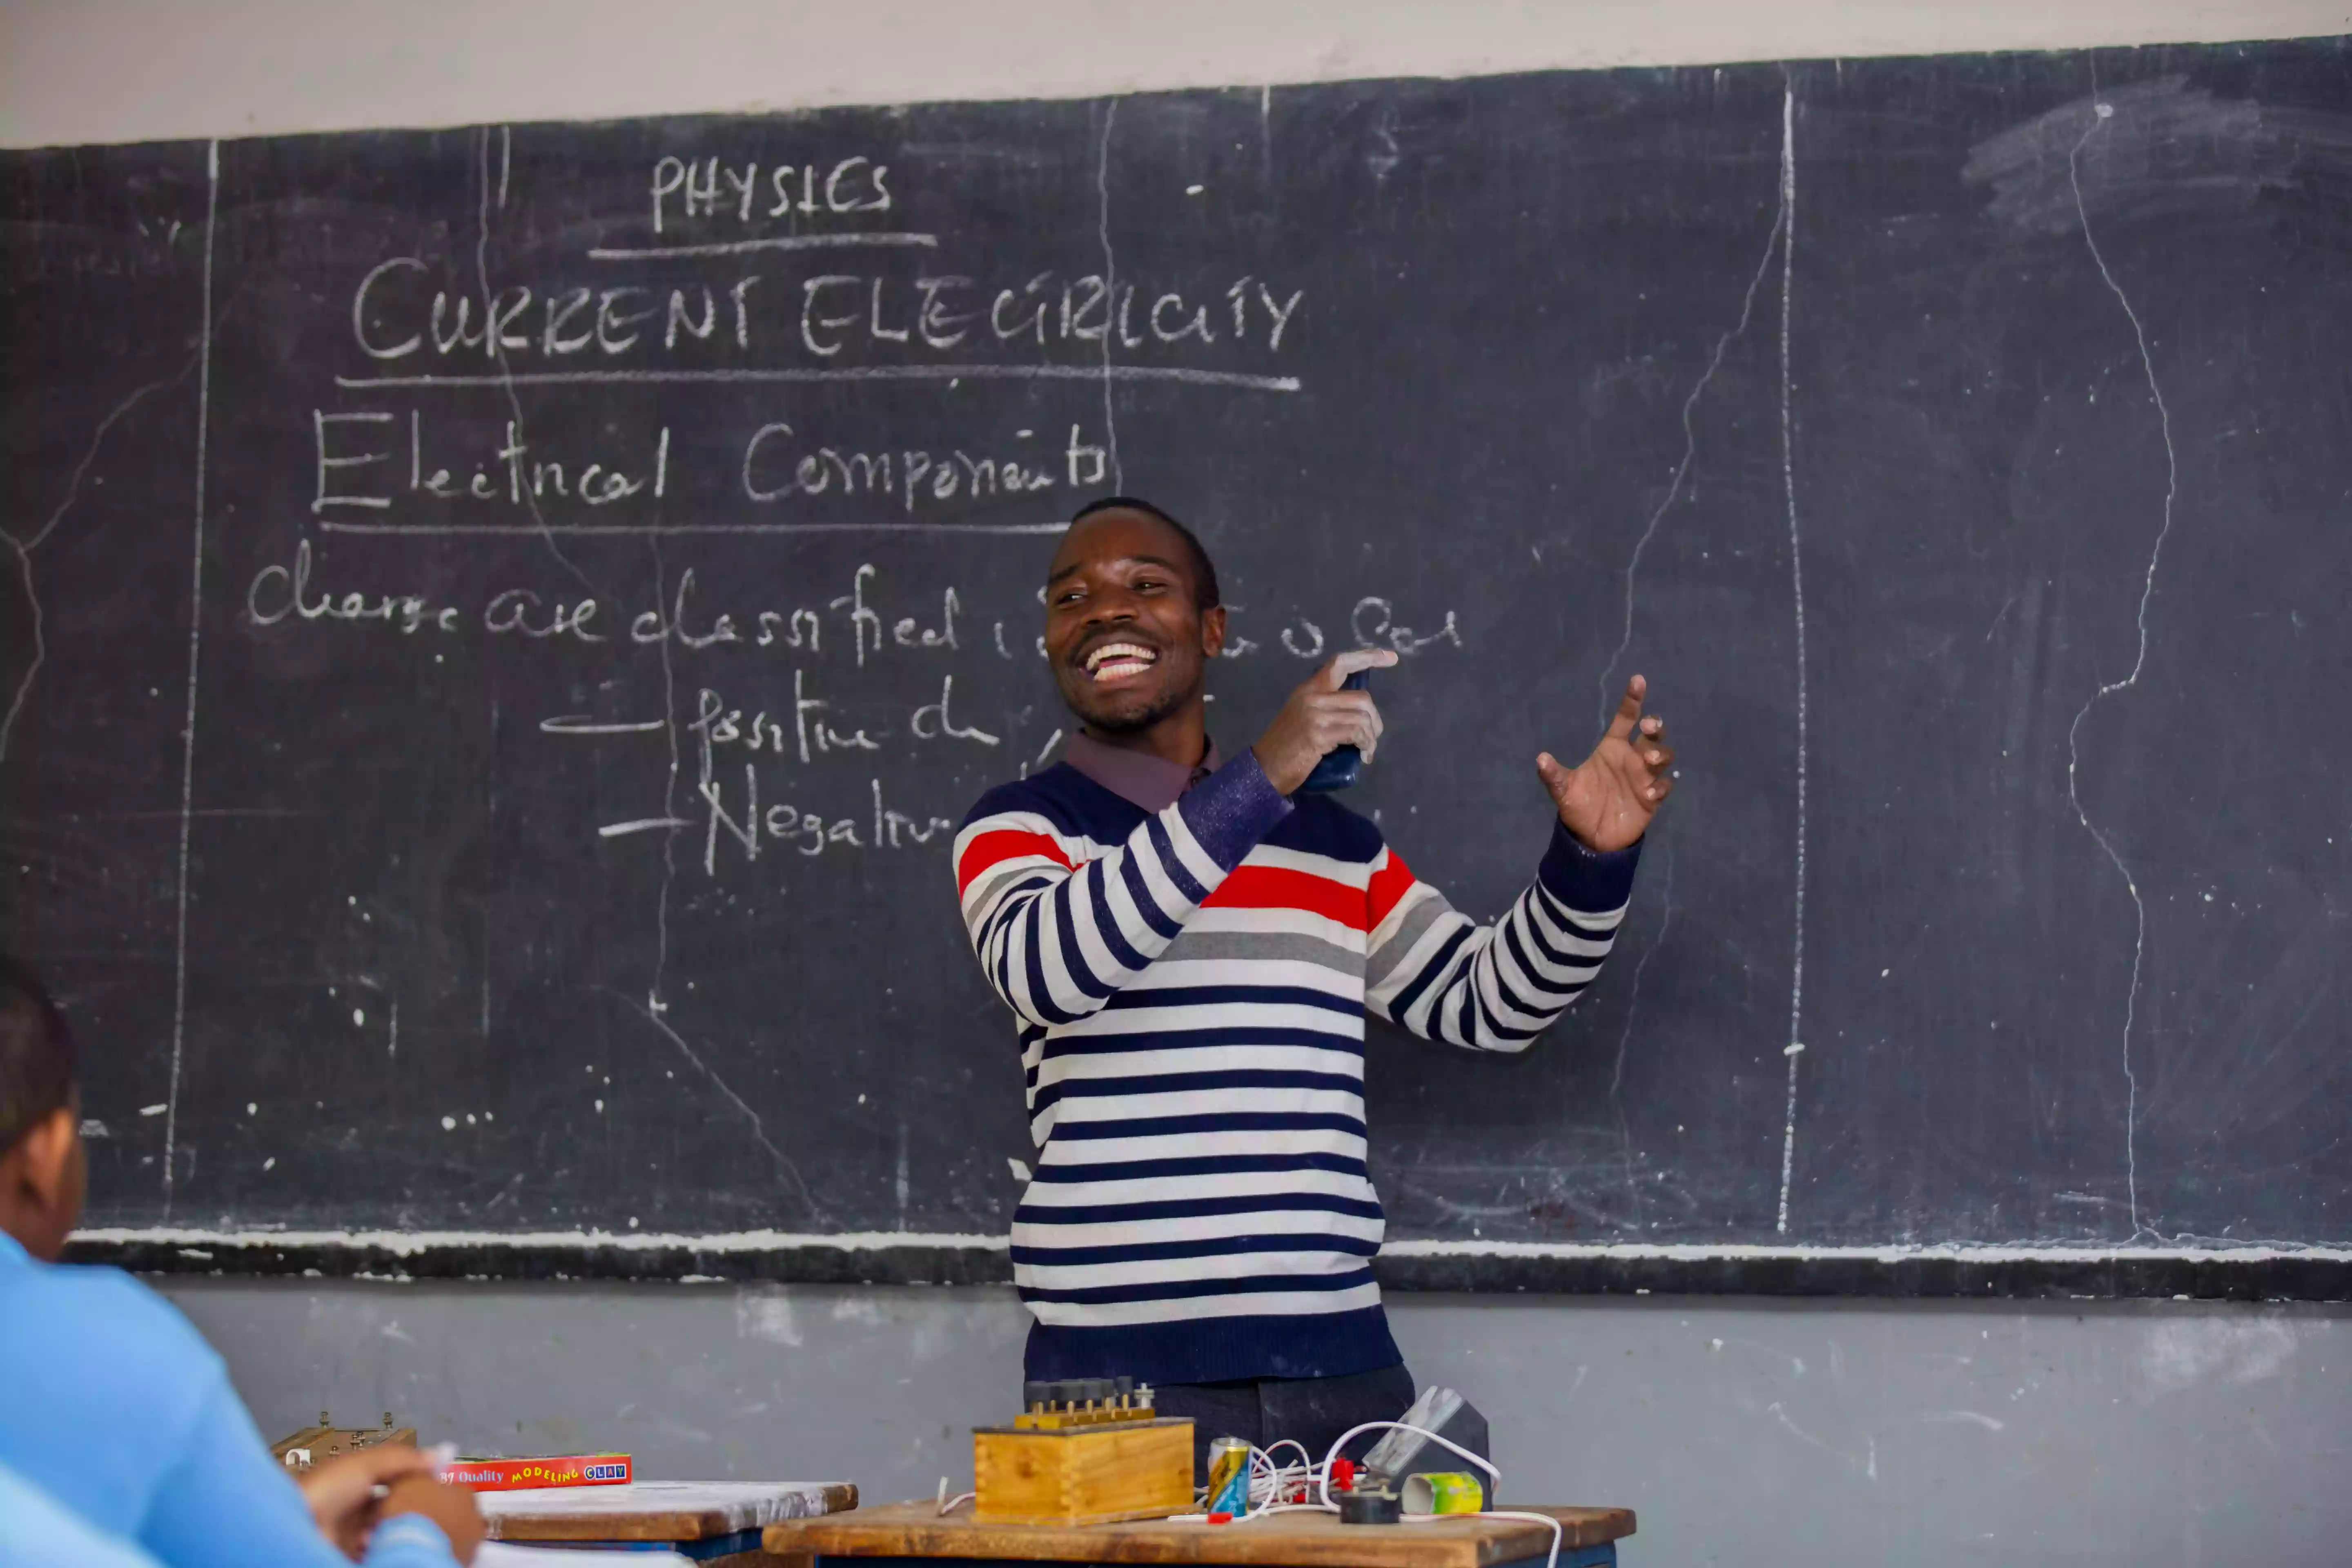 PHYSICS
CURRENT ELECTRICITY
Electrical Components
charge are classified
— positive ch
— Negativ
Quality MODELING CLAY